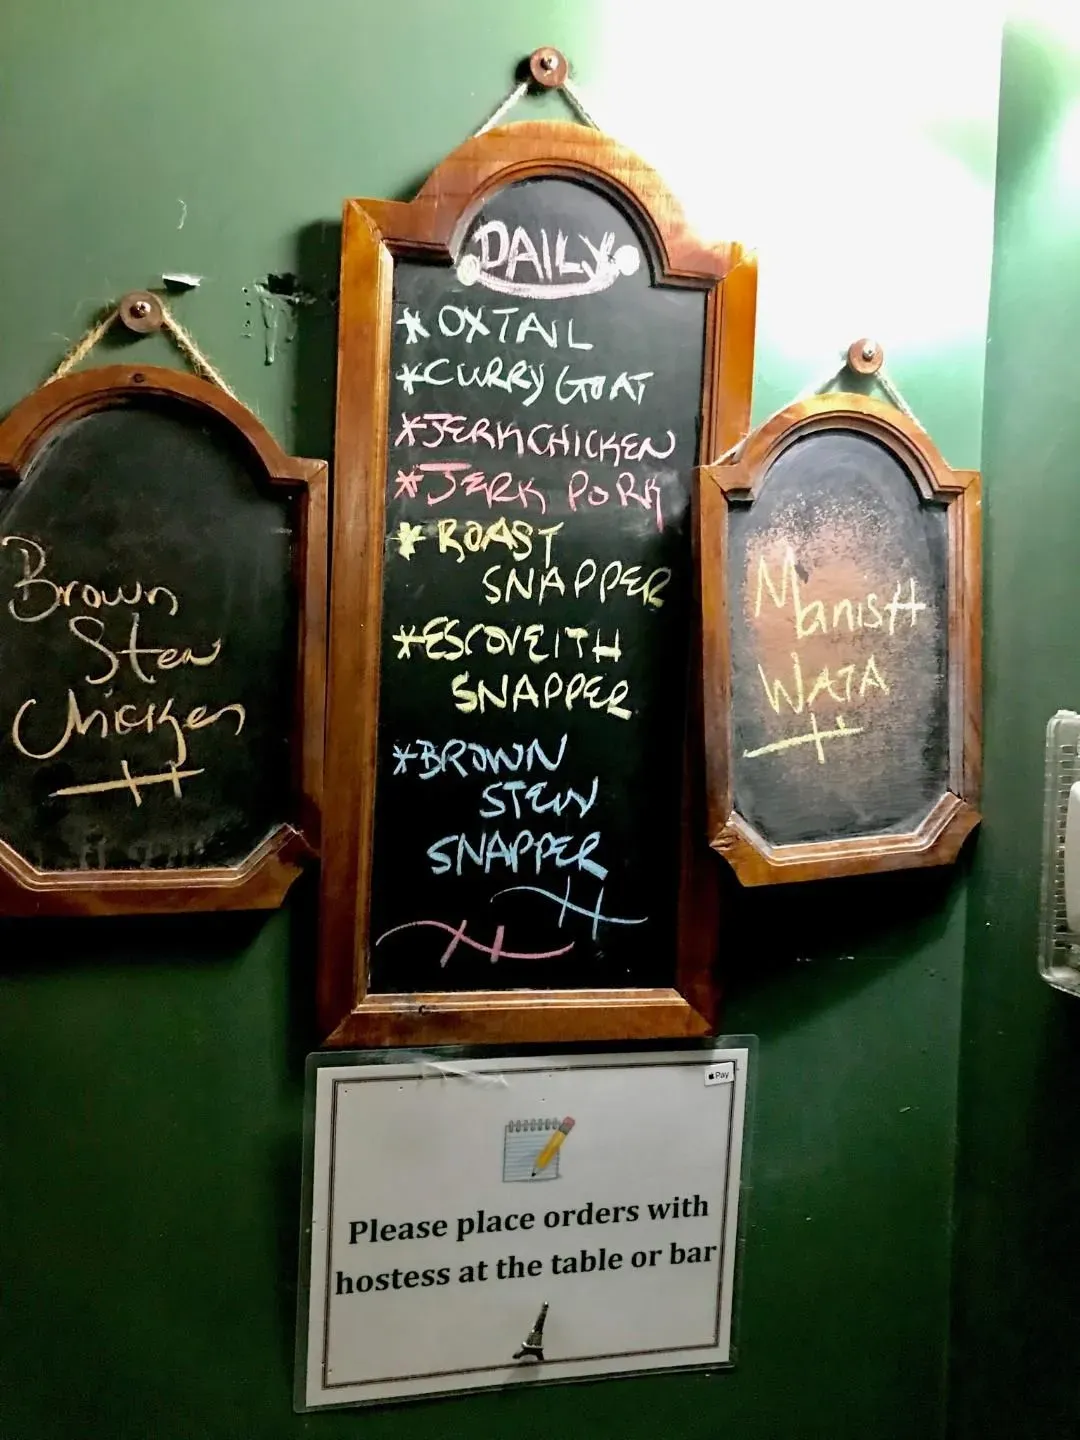 Brown
Stew
Chicken
DAILY
*OXTAIL
*CURRY GOAT
*JERK CHICKEN
*JERK PORK
*ROAST
SNAPPER
*ESCOVEITH
SNAPPER
*BROWN
STEW
SNAPPER
Manish
WATA
Pay
Please place orders with
hostess at the table or bar